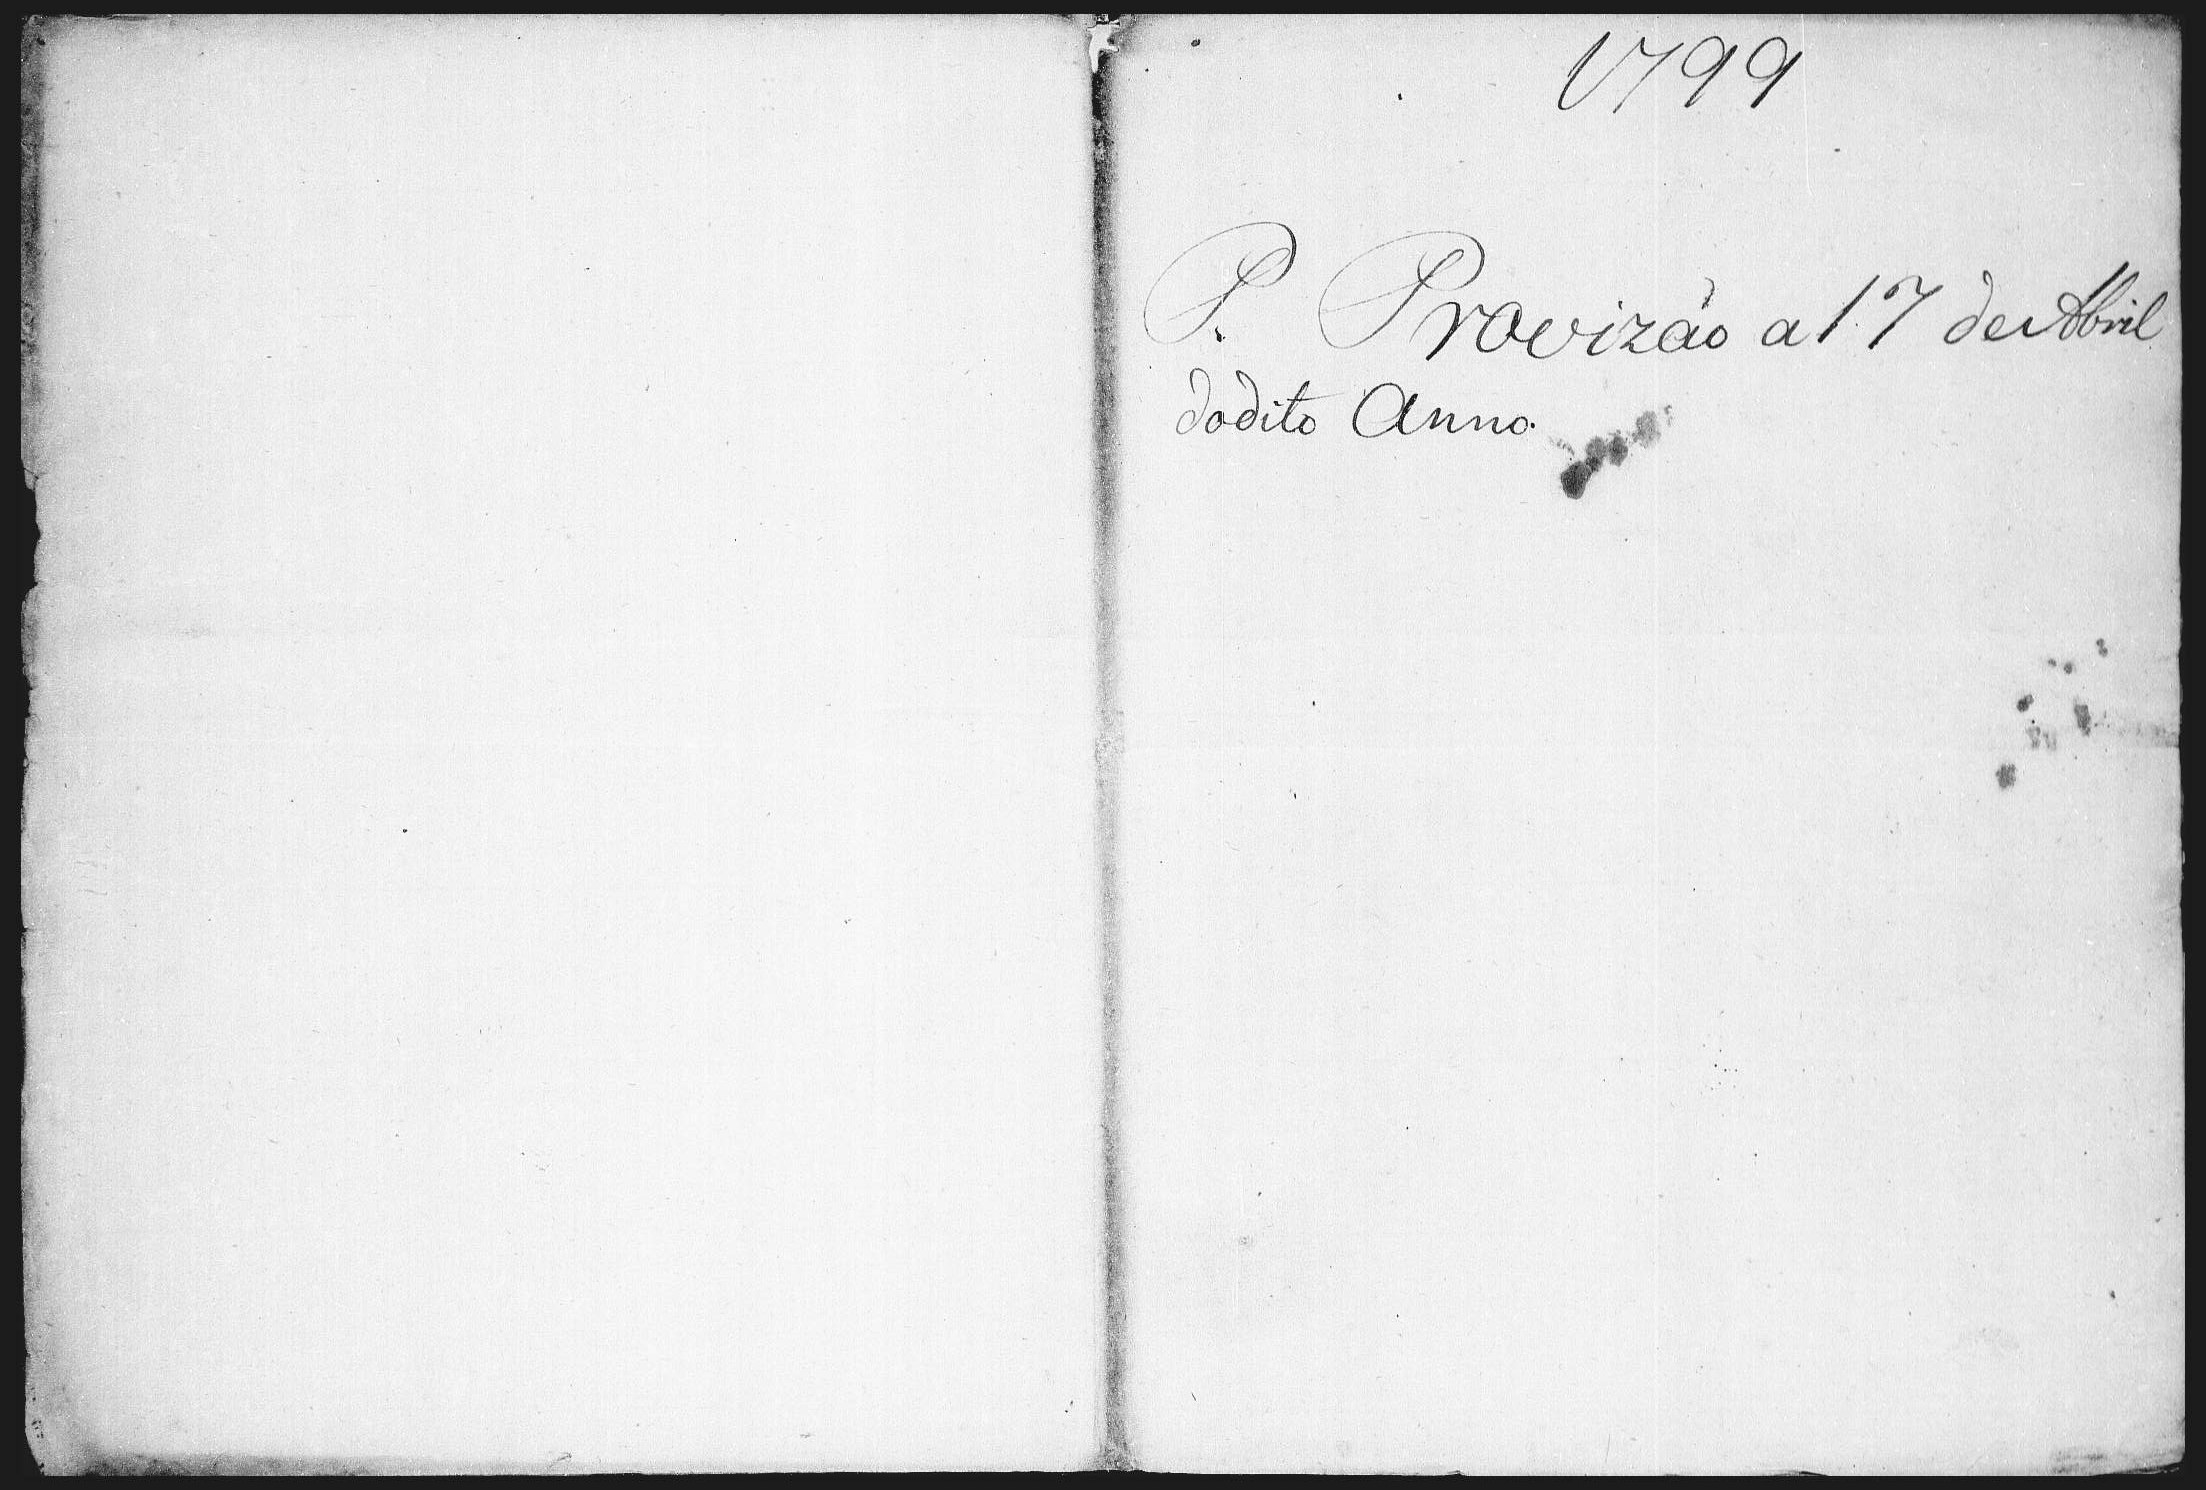 1799
P. Provizão a 17 de Abril
do dito Anno.